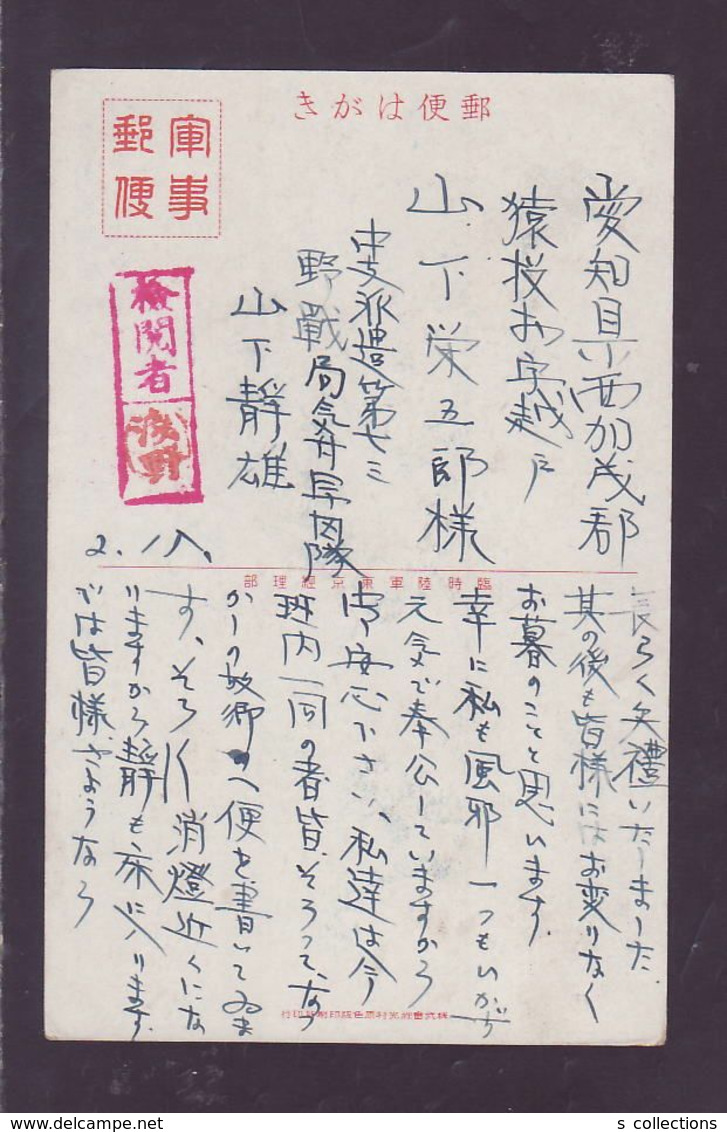 郵便はがき
軍事
郵便
検閲者
浅野
愛知県西加茂郡
猿投村字越戸
山下栄五郎様
中支派遣第七三
野戰局気付
隊
山下靜雄
2. 18.
臨時陸軍東京經理部
長らく失禮いたしました
其の後も皆様にはお変りなく
お暮のことと思います
幸に私も風邪一つもいがず
元気で奉公していますから
御安心下さい、私達は今
班内一同の者皆、そろって、なつ
かしの故郷へ便を書いてゐま
す、そろ〳〵消燈近くにな
りますから、靜も床に入ります.
では皆様、さようなら
s collections